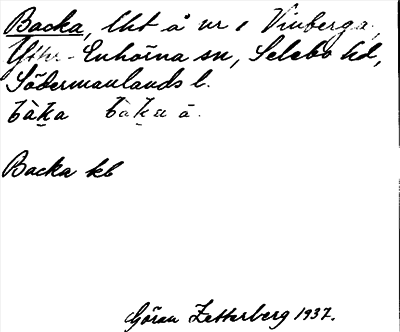 Backa, lht å nr 1 Vinberga,
Ytter-Enhörna sn, Selebo hd,
Södermanlands l.
Backa kb
Göran Zetterberg 1937.